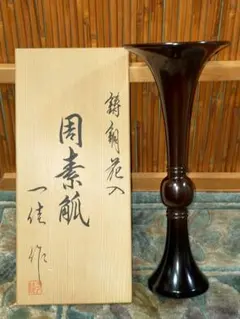 鋳銅花入
周素觚
一佳作